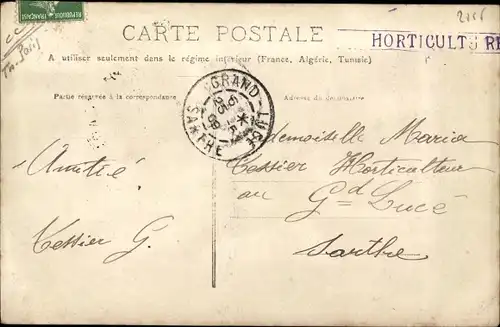 2155
CARTE POSTALE
HORTICULTURE
A utiliser seulement dans le régime intérieur (France, Algérie, Tunisie)
Partie réservée à la correspondance
Adresse du destinataire
GRAND-LUCÉ
SARTHE
Mademoiselle Maria
Amitié
Tessier Horticulteur
au Gd Lucé
Tessier G.
Sarthe